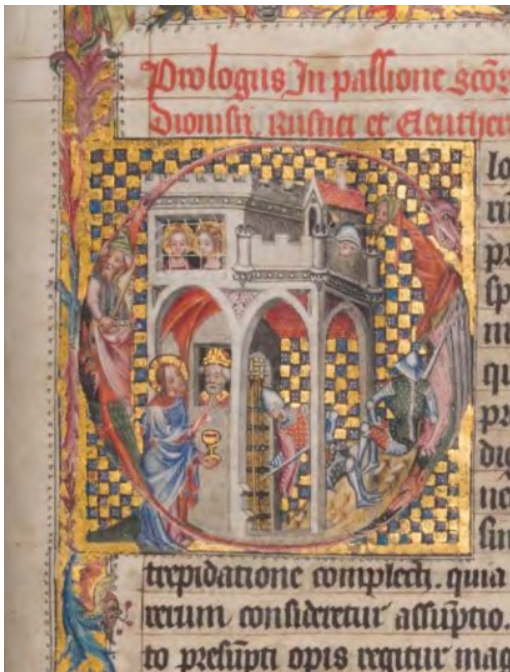 Prologus In passione scōs
Dionisii, Rustici et Eleuther
lo
pr
sp
qu
pr
dig
ne
trepidatione complecti. quia
rerum consideretur assūptio.
to presūpti opis regitur mag